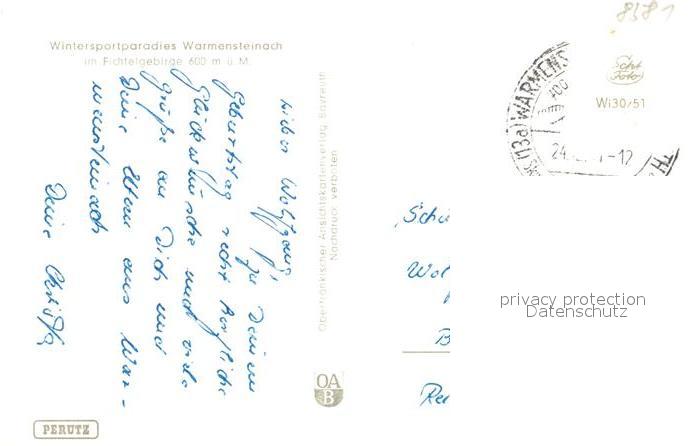 8581
Wintersportparadies Warmensteinach
im Fichtelgebirge 600 m ü. M.
Lieber Wolfgang,
zu Deinem
Geburtstag recht herzliche
Glückwünsche und viele
Grüße an Dich und
Deine Eltern aus War-
mensteinach
Deine
Oberfränkischer Ansichtskartenverlag Bayreuth
Nachdruck verboten
OA
B
PERUTZ
(13a) WARMENS
24. 1-12
Foto
Wi30/51
Schü
Wol
B
privacy protection
Datenschutz